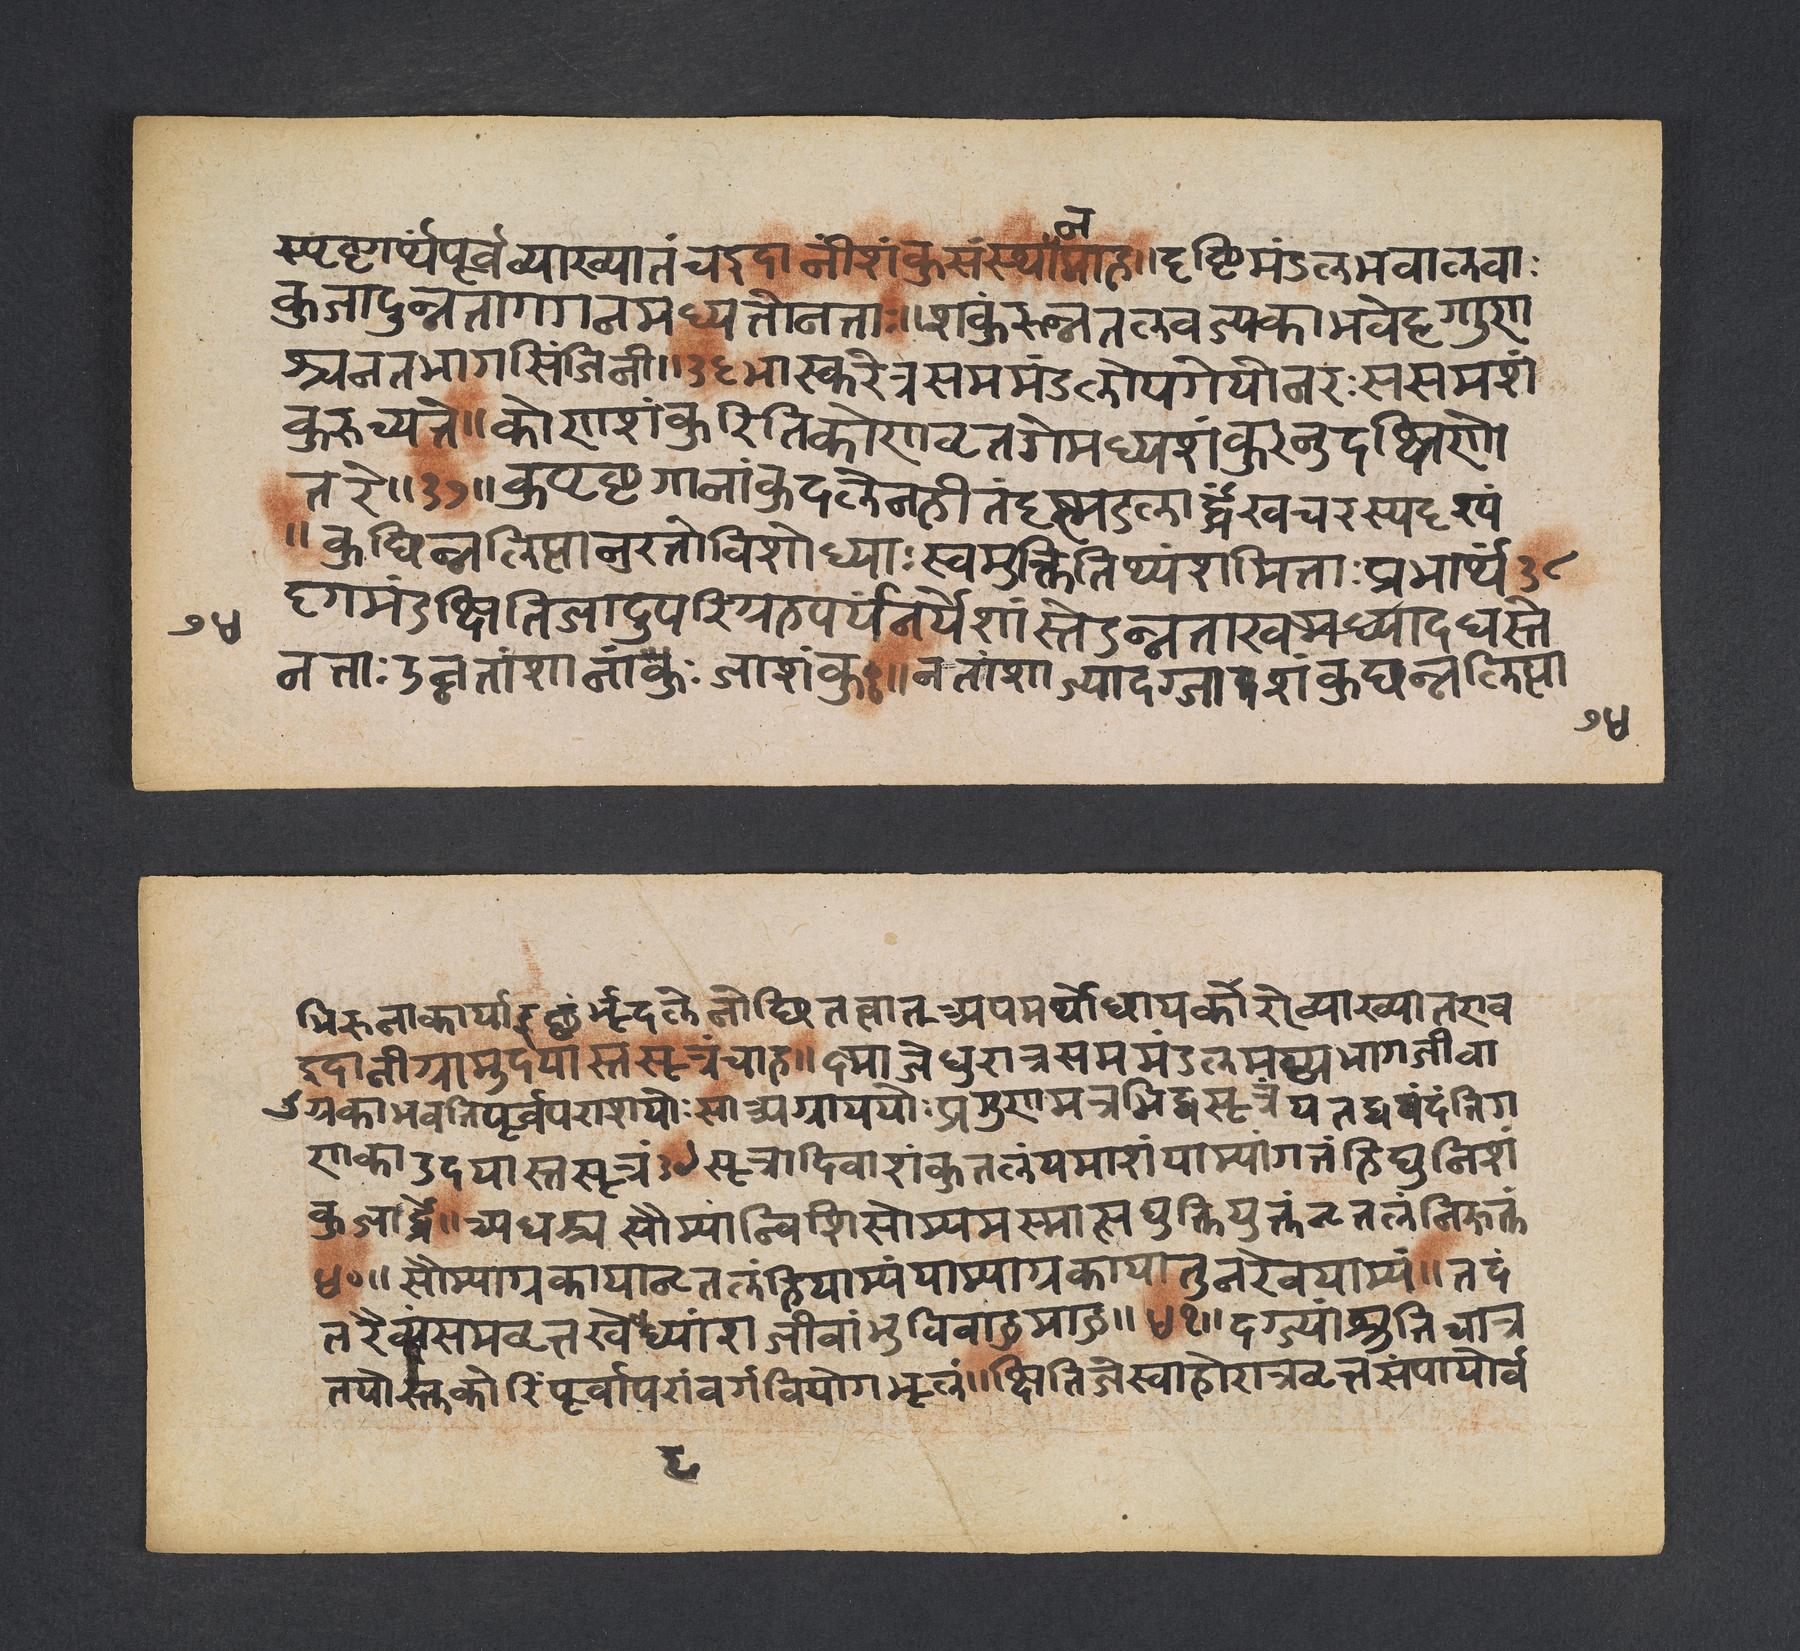 स्पवृगर्थ्यंपूर्वव्याख्यातंचइदानींशंकुसंस्थानमाह॥दृष्टिमंडलभवालवाः
कुजादुन्नतागगनमध्यतोनताः॥शंकुरुन्नतलवज्यकाभवेदृग्गुणा
श्चनतभागसिंजिनी॥३६भास्करेत्रसममंडलोपगेयोनरःससमशं
कुरुच्यते॥कोणशंकुरितिकोणवृतगेमध्यशंकुरनुदक्षिणो
तरे॥३७॥कुपृष्टगानांकुदलेनहीतंदृङ्मडलार्द्धंखचरस्यदृश्यं
॥कुघिन्नलिप्तानरतोविशोध्याःस्वभुक्तितिथ्यंशमिताःप्रभार्थं३८
दृगमंडक्षितिजादुपरिग्रहपर्यंनर्येशांस्तेउन्नताखमध्यादधस्ते
नताःउन्नतांशानांकुःजाशंकुः॥नतांशाज्यादग्जाशंकुघन्नलिप्ता
७५
७५
भिरुनाकार्या भूदलेनोछितत्वात्अपमर्थोध्यायर्कोरोव्याख्यातएव
इदानीग्रामुदयास्तसूत्रंचाह॥क्ष्माजेधुरात्रसममंडलमध्यभागजीवा
ग्रकाभवतिपूर्वपराशयोःसाअग्राययोःप्रगुणमत्रनिबद्धसूत्रंयतद्घवंदंतिग
णकाउदयास्तसूत्रं३९सूत्रादिवाशंकुतलंयमाशंयाम्यांगतंहिघुनिशं
कुजार्द्धे॥अधश्चसौम्यांन्निशिसोम्यमस्मात्सघुक्तियुक्तंनृतलंनिरुक्तं
४०॥सौम्याग्रकायानृतलंहियाम्यंयाम्याग्रकायातुनरेवयाम्यं॥तदं
तरैक्यंसमवृत्तखेध्यांशजीवांभुविबाहुमाहु॥४१॥दग्ज्यांश्रुतिचात्र
तयोस्तुकोटिंपूर्वापरांवर्गवियोगमूलं॥क्षितिजेस्वाहोरात्रवृत्तसंपायोर्व